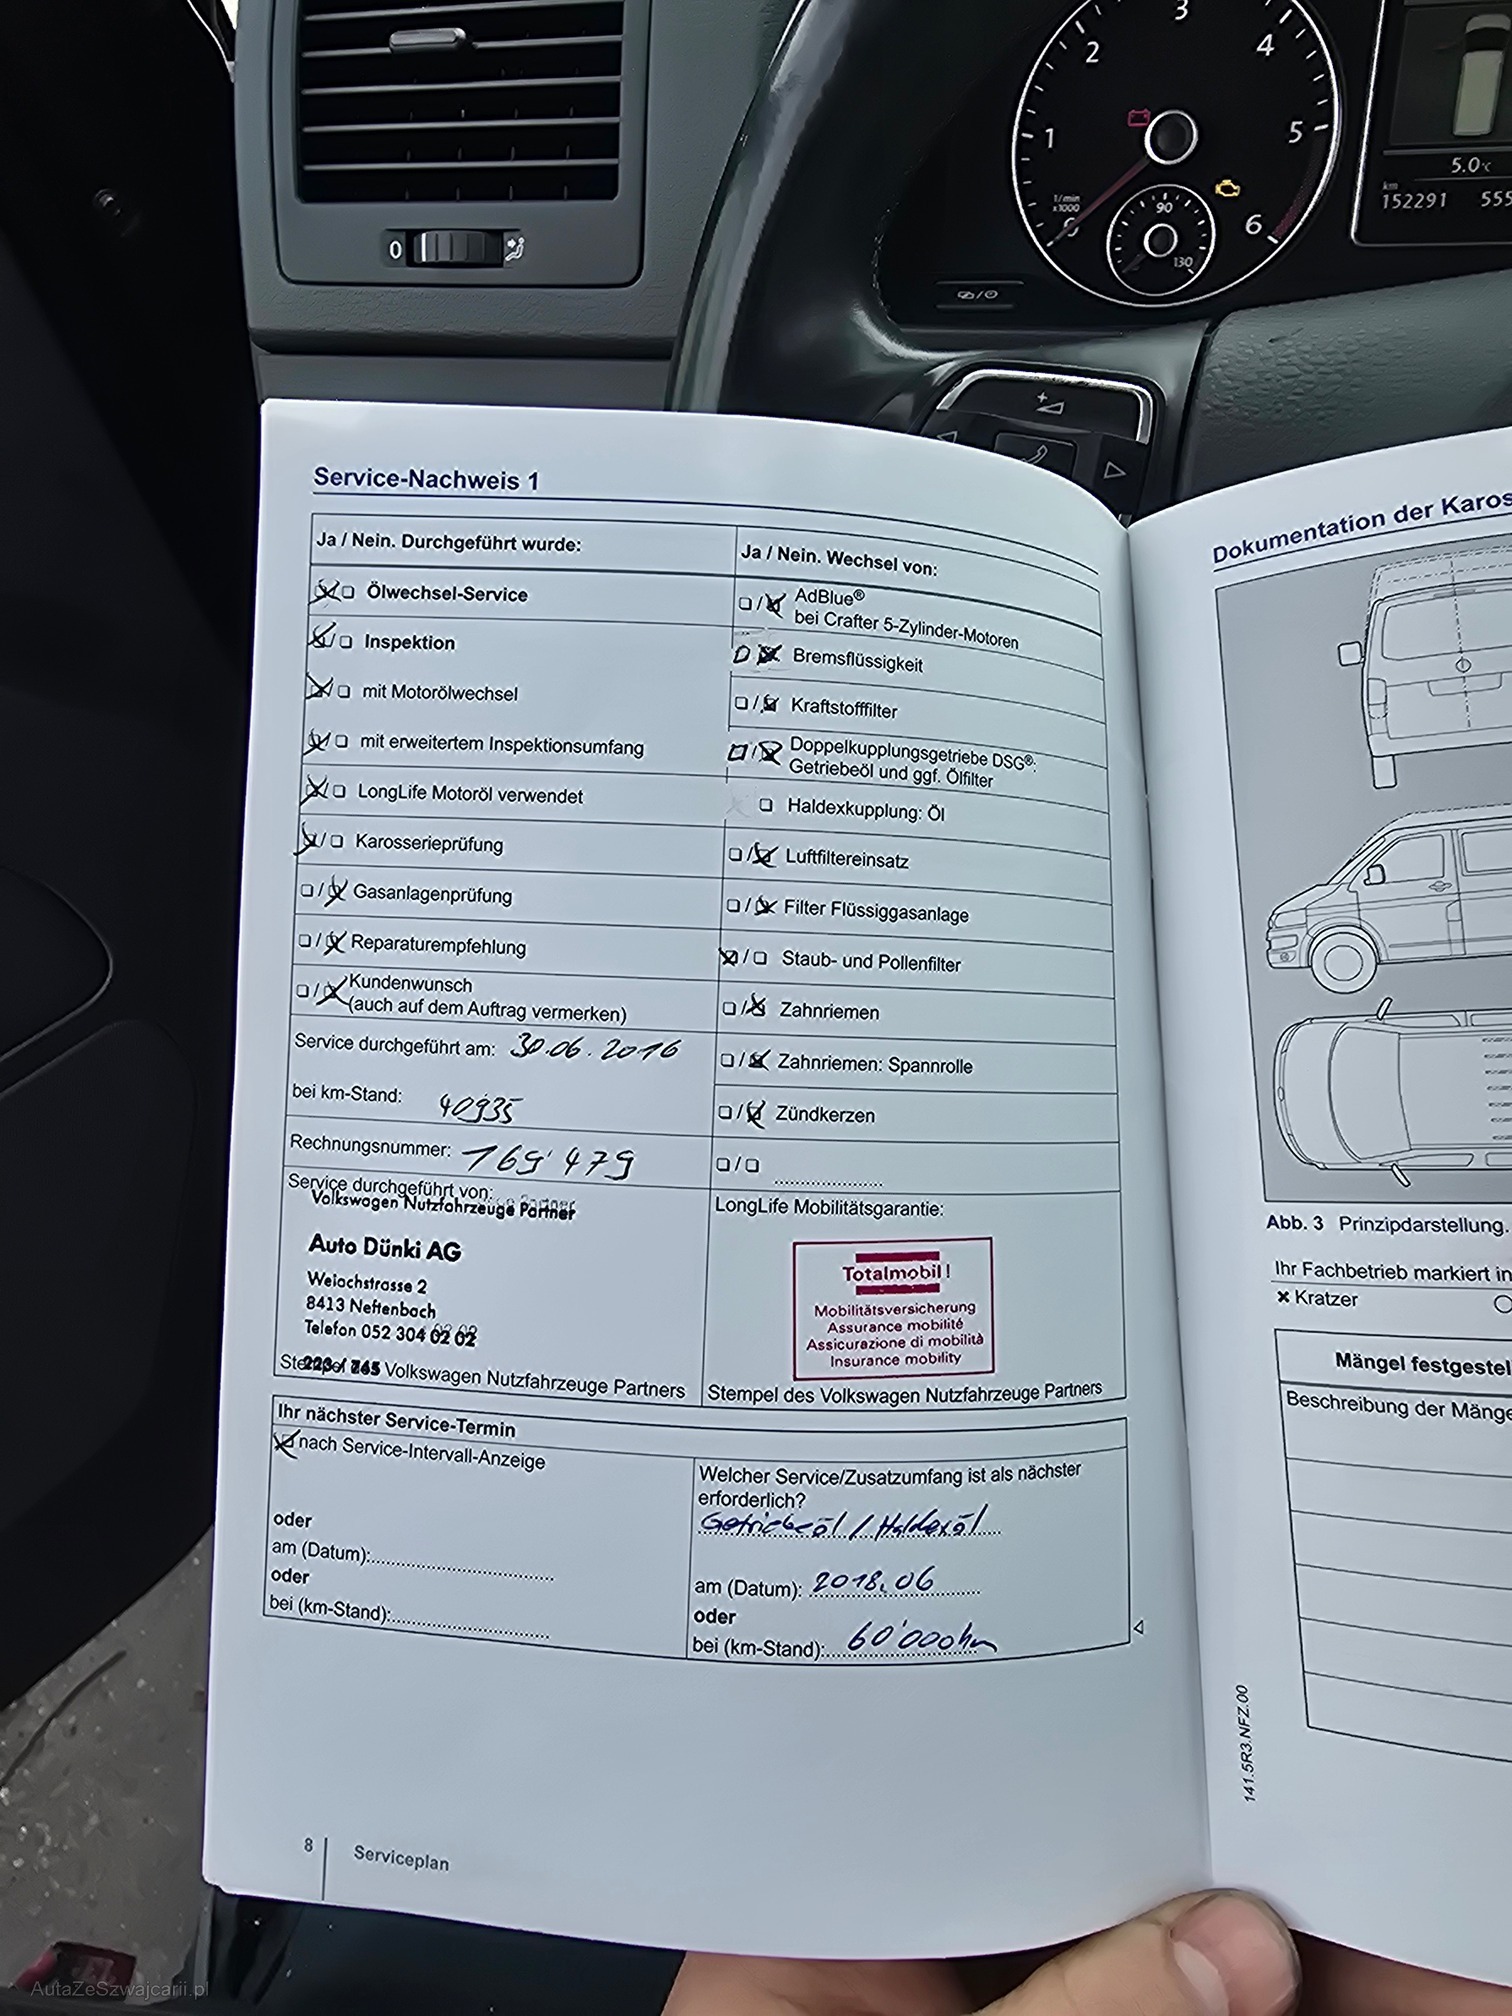 3
2
4
1
5
1/min
x1000
90
6
130
0
5.0°C
km
152291 555
Service-Nachweis 1
Ja / Nein. Durchgeführt wurde:
Ölwechsel-Service
Inspektion
mit Motorölwechsel
mit erweitertem Inspektionsumfang
LongLife Motoröl verwendet
Karosserieprüfung
Gasanlagenprüfung
Reparaturempfehlung
Kundenwunsch
(auch auf dem Auftrag vermerken)
Service durchgeführt am: 30.06.2016
bei km-Stand: 40935
Rechnungsnummer: 169'479
Service durchgeführt von:
Volkswagen Nutzfahrzeuge Partner
Auto Dünki AG
Weiachstrasse 2
8413 Neftenbach
Telefon 052 304 02 02
Volkswagen Nutzfahrzeuge Partners
Ja / Nein. Wechsel von:
AdBlue®
bei Crafter 5-Zylinder-Motoren
Bremsflüssigkeit
Kraftstofffilter
Doppelkupplungsgetriebe DSG®:
Getriebeöl und ggf. Ölfilter
Haldexkupplung: Öl
Luftfiltereinsatz
Filter Flüssiggasanlage
Staub- und Pollenfilter
Zahnriemen
Zahnriemen: Spannrolle
Zündkerzen
LongLife Mobilitätsgarantie:
Totalmobil!
Mobilitätsversicherung
Assurance mobilité
Assicurazione di mobilità
Insurance mobility
Stempel des Volkswagen Nutzfahrzeuge Partners
Ihr nächster Service-Termin
nach Service-Intervall-Anzeige
oder
am (Datum):
oder
bei (km-Stand):
Welcher Service/Zusatzumfang ist als nächster
erforderlich?
Getriebeöl / Haldexöl
am (Datum): 2018.06
oder
bei (km-Stand): 60'000km
8 Serviceplan
Dokumentation der Karos
Abb. 3 Prinzipdarstellung.
Ihr Fachbetrieb markiert in
Kratzer
Mängel festgestel
Beschreibung der Mänge
141.5R3.NFZ.00
AutaZeSzwajcarii.pl